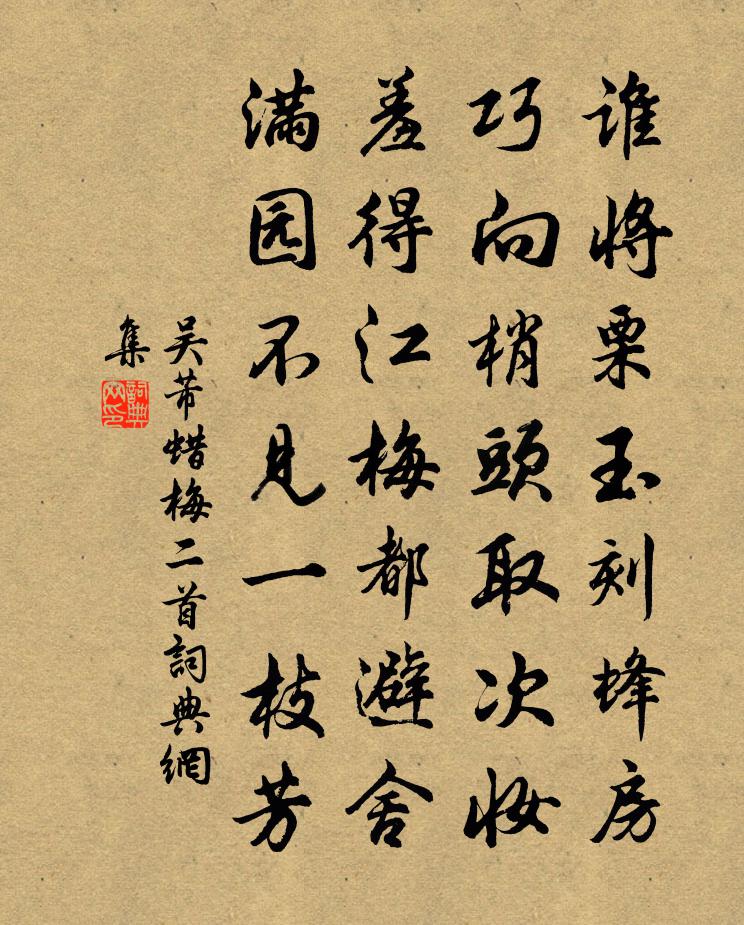 谁将栗玉刻蜂房
巧向梢頭取次妆
羞得江梅都避舍
满园不见一枝芳
吴芾蜡梅二首詞典網
集
詞典
网印